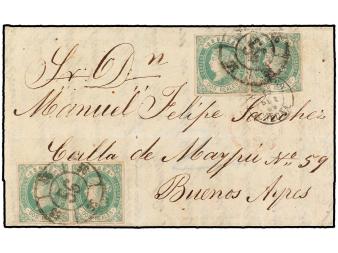 Sr Dn
Manuel Felipe Sanchez
Calle de Maypú No 59
Buenos Ayres